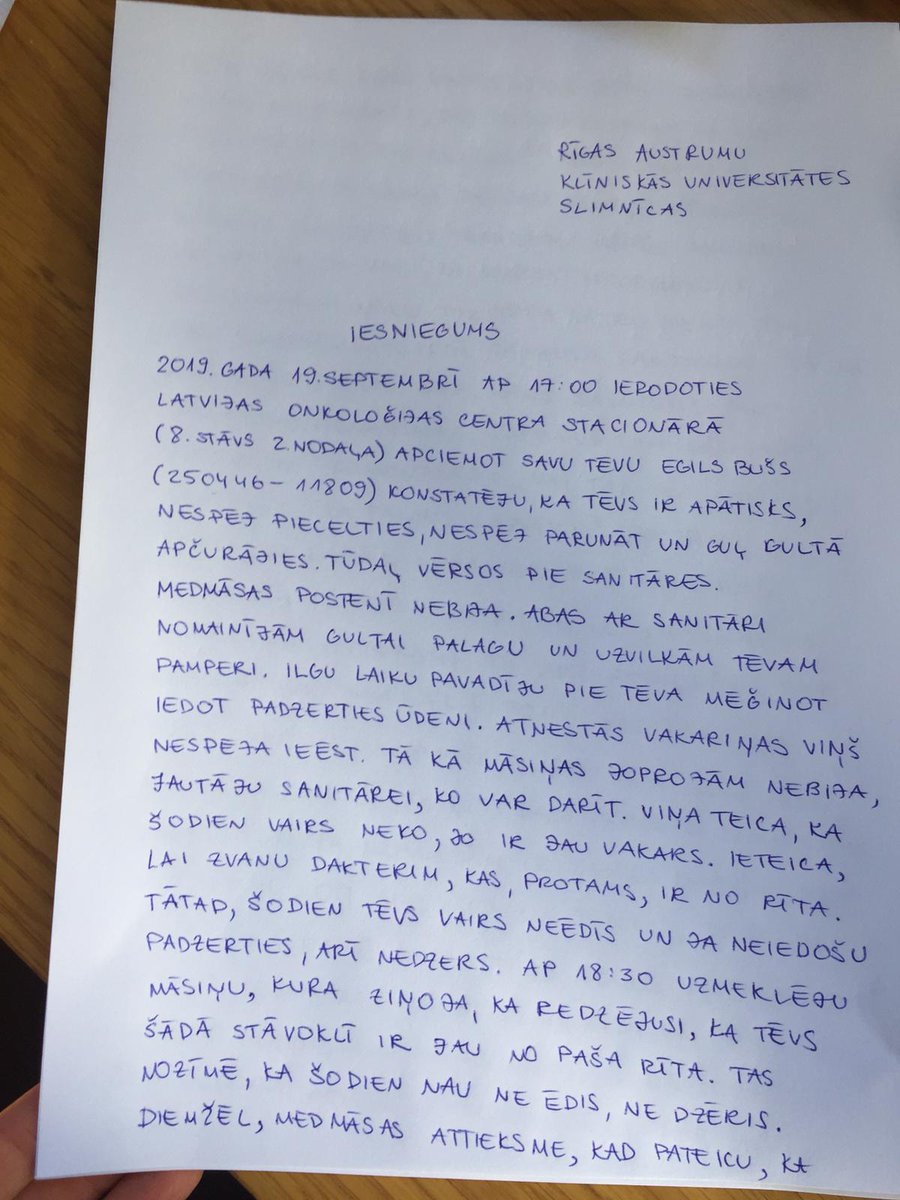 RĪGAS AUSTRUMU
KLĪNISKĀS UNIVERSITĀTES
SLIMNĪCAS
IESNIEGUMS
2019. GADA 19. SEPTEMBRĪ AP 17:00 IERODOTIES
LATVIJAS ONKOLOĢIJAS CENTRA STACIONĀRĀ
(8. STĀVS 2. NODAĻA) APCIEMOT SAVU TĒVU EGILS BUŠS
(250446-11809) KONSTATĒJU, KA TĒVS IR APĀTISKS,
NESPĒJ PIECELTIES, NESPĒJ PARUNĀT UN GUĻ GULTĀ
APČURĀJIES. TŪDAĻ VĒRSOS PIE SANITĀRES.
MEDMĀSAS POSTENĪ NEBIJA. ABAS AR SANITĀRI
NOMAINĪJĀM GULTAI PALAGU UN UZVILKĀM TĒVAM
PAMPERI. ILGU LAIKU PAVADĪJU PIE TĒVA MĒĢINOT
IEDOT PADZERTIES ŪDENI. ATNESTĀS VAKARIŅAS VIŅŠ
NESPĒJA IEĒST. TĀ KĀ MĀSIŅAS JOPROJĀM NEBIJA,
JAUTĀJU SANITĀREI, KO VAR DARĪT. VIŅA TEICA, KA
ŠODIEN VAIRS NEKO, JO IR JAU VAKARS. IETEICA,
LAI ZVANU DAKTERIM, KAS, PROTAMS, IR NO RĪTA.
TĀTAD, ŠODIEN TĒVS VAIRS NEĒDĪS UN JA NEIEDOŠU
PADZERTIES, ARĪ NEDZERS. AP 18:30 UZMEKLĒJU
MĀSIŅU, KURA ZIŅOJA, KA REDZĒJUSI, KA TĒVS
ŠĀDĀ STĀVOKLĪ IR JAU NO PAŠA RĪTA. TAS
NOZĪMĒ, KA ŠODIEN NAV NE ĒDIS, NE DZĒRIS.
DIEMŽĒL, MEDMĀSAS ATTIEKSME, KAD PATEICU, KA